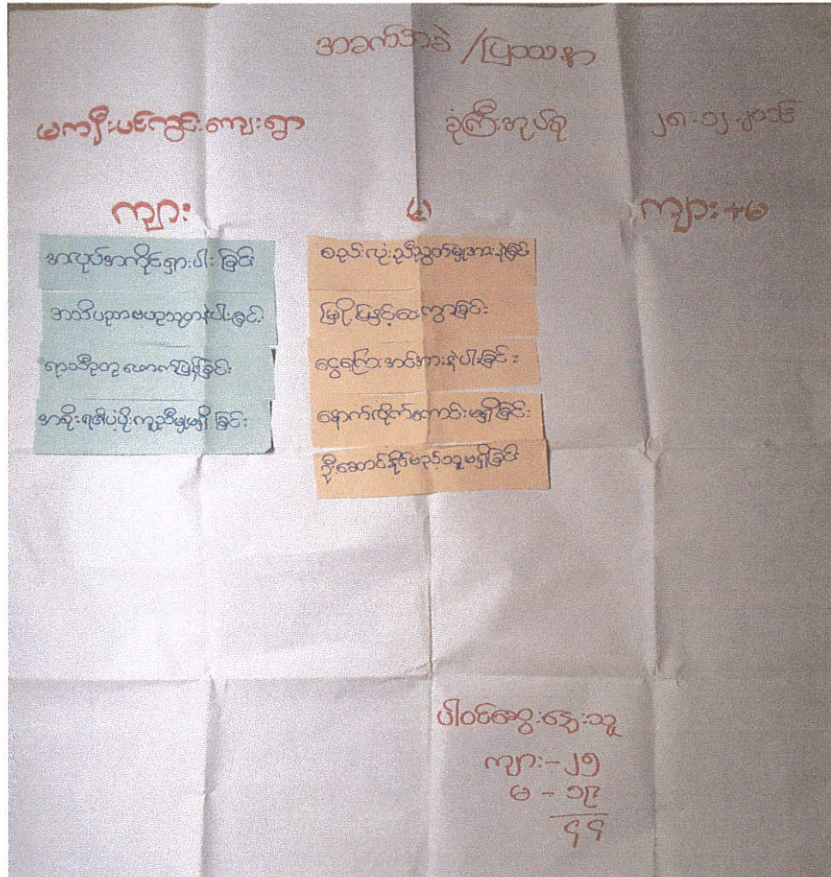 အခက်အခဲ / ပြဿနာ
မကျီးပင်ကွင်းကျေးရွာ
စုံကြီးအုပ်စု
ကျား
မ
ကျား + မ
အလုပ်အကိုင်ရှားပါးခြင်း
အသိပညာဗဟုသုတနဲပါးခြင်း
ရာသီဥတုဖောက်ပြန်ခြင်း
အစိုးရ၏ပံ့ပိုးကူညီမှုမရှိခြင်း
စည်းလုံးညီညွတ်မှုအားနဲခြင်း
မြို့ဖြင့်ဝေးကွာခြင်း
ငွေကြေးအင်အားနဲပါးခြင်း
နောက်လိုက်ကောင်းမရှိခြင်း
ဦးဆောင်နိုင်မည့်သူမရှိခြင်း
ပါဝင်ဆွေးနွေးသူ
ကျား - ၂၅
မ - ၁၉
၄၄